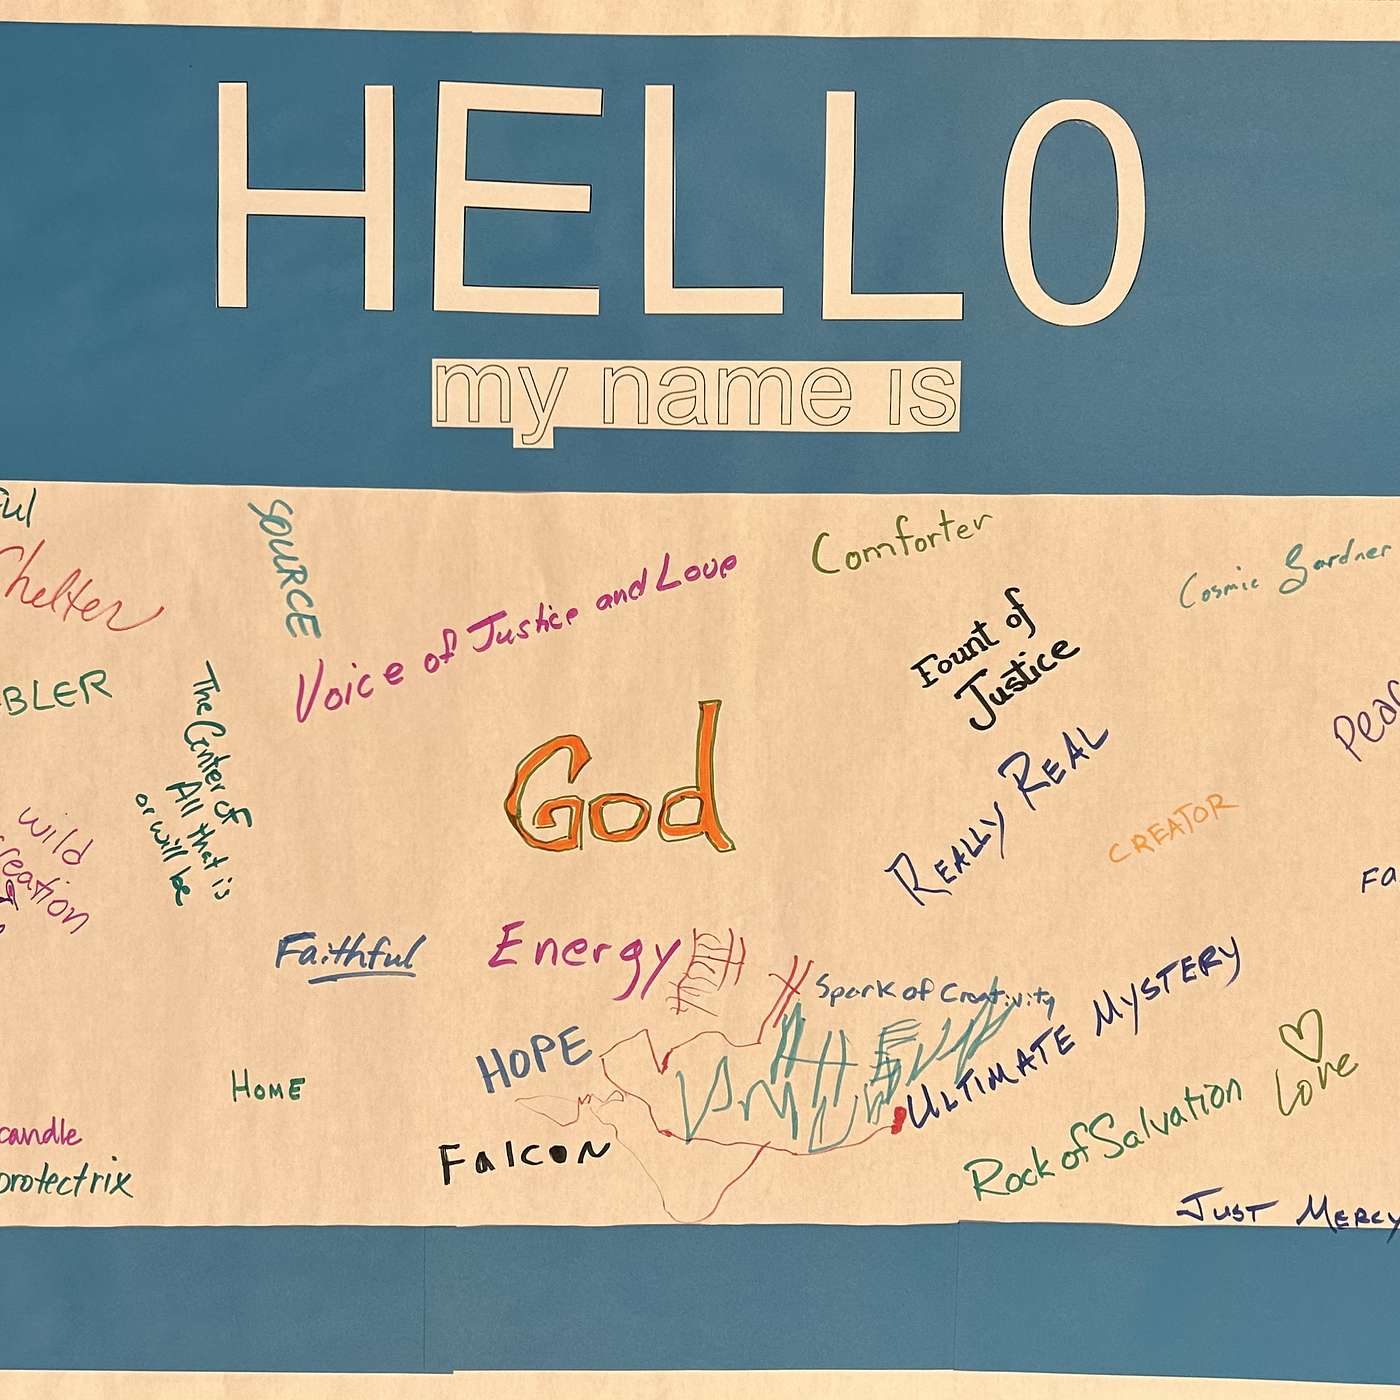 HELLO
my name is
SOURCE
Comforter
Cosmic Gardner
Shelter
Voice of Justice and Love
Fount of
Justice
BLER
The Center of
All that is
or will be
God
REALLY REAL
CREATOR
wild
creation
Faithful
Energy
Spark of Creativity
ULTIMATE MYSTERY
HOPE
HOME
Love
Falcon
Rock of Salvation
candle
protectrix
JUST MERCY